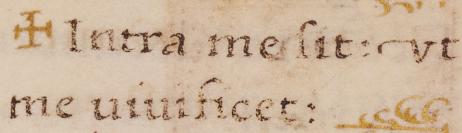 ✠ Intra me sit: vt
me uiuificet: